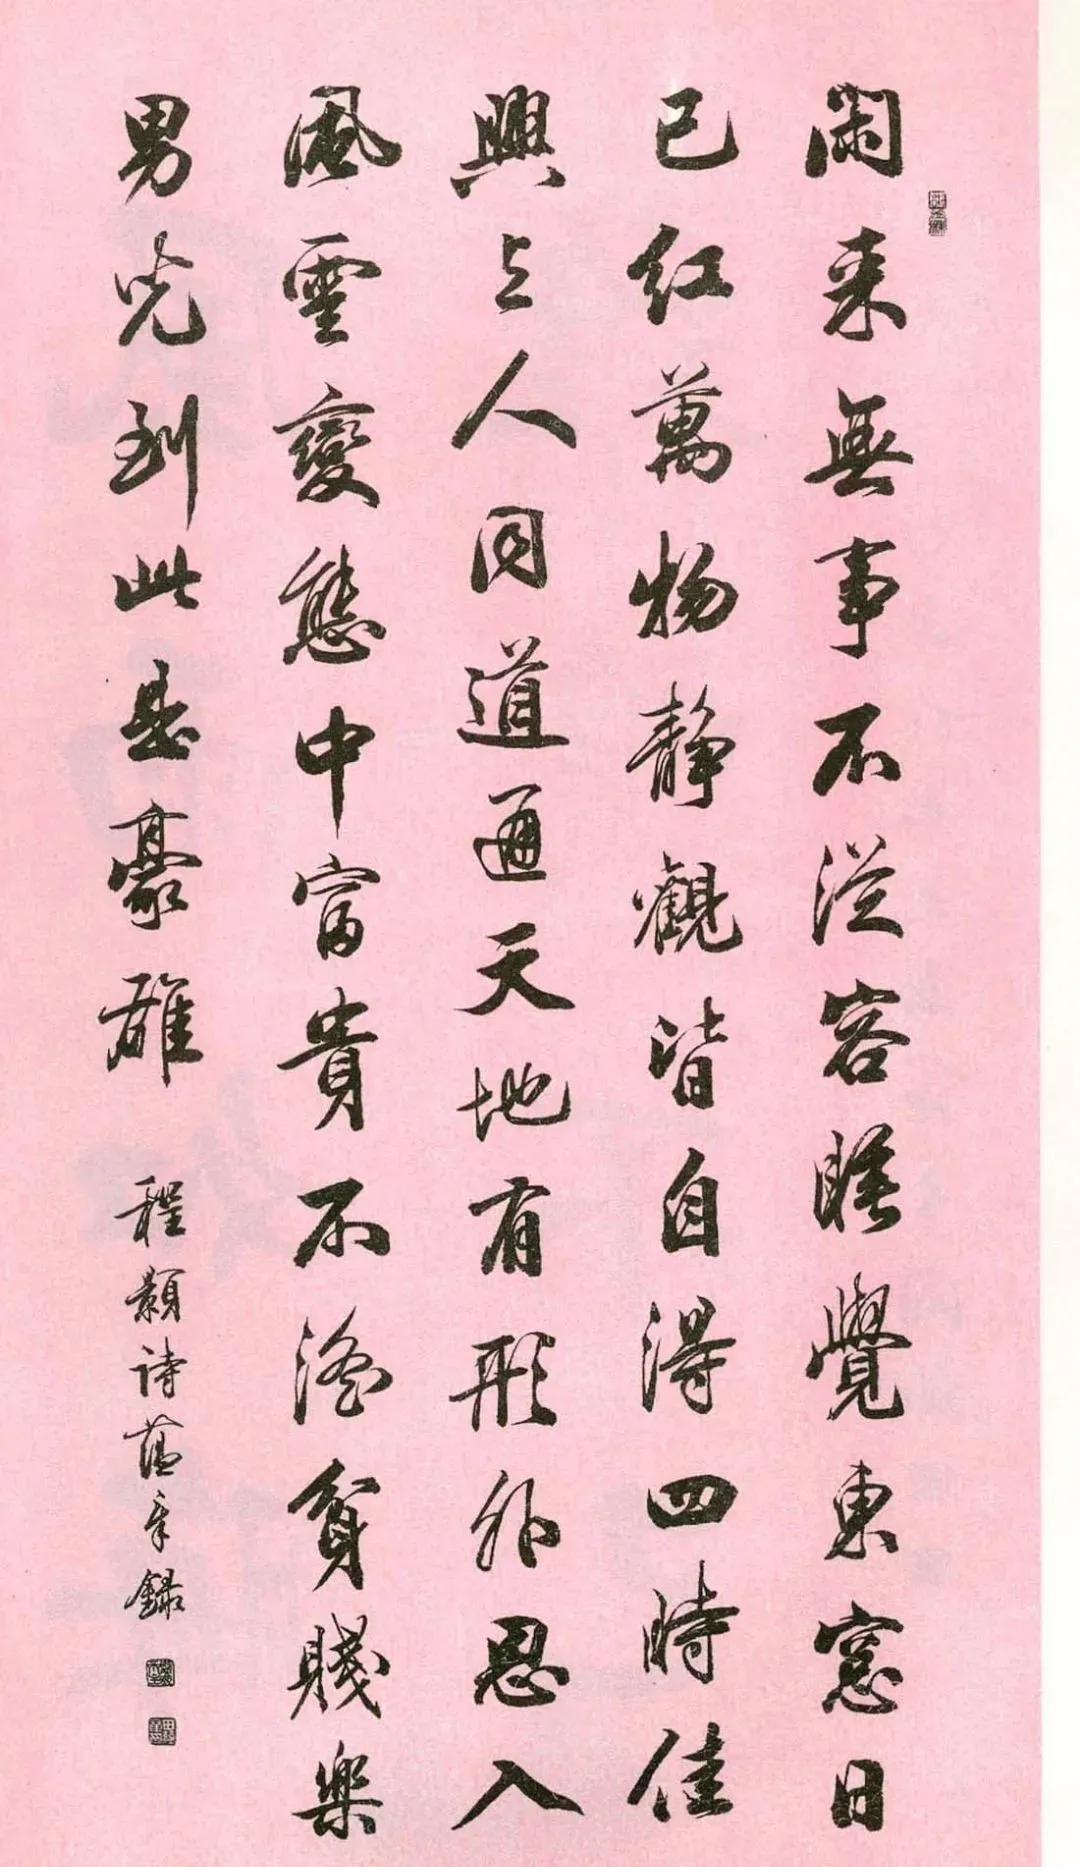 閑来無事不從容睡覺東窓日
已红萬物靜觀皆自得四時佳
興与人同道通天地有形外思入
風雲變態中富貴不淫貧賤樂
男児到此是豪雄
程顥詩蕴章録